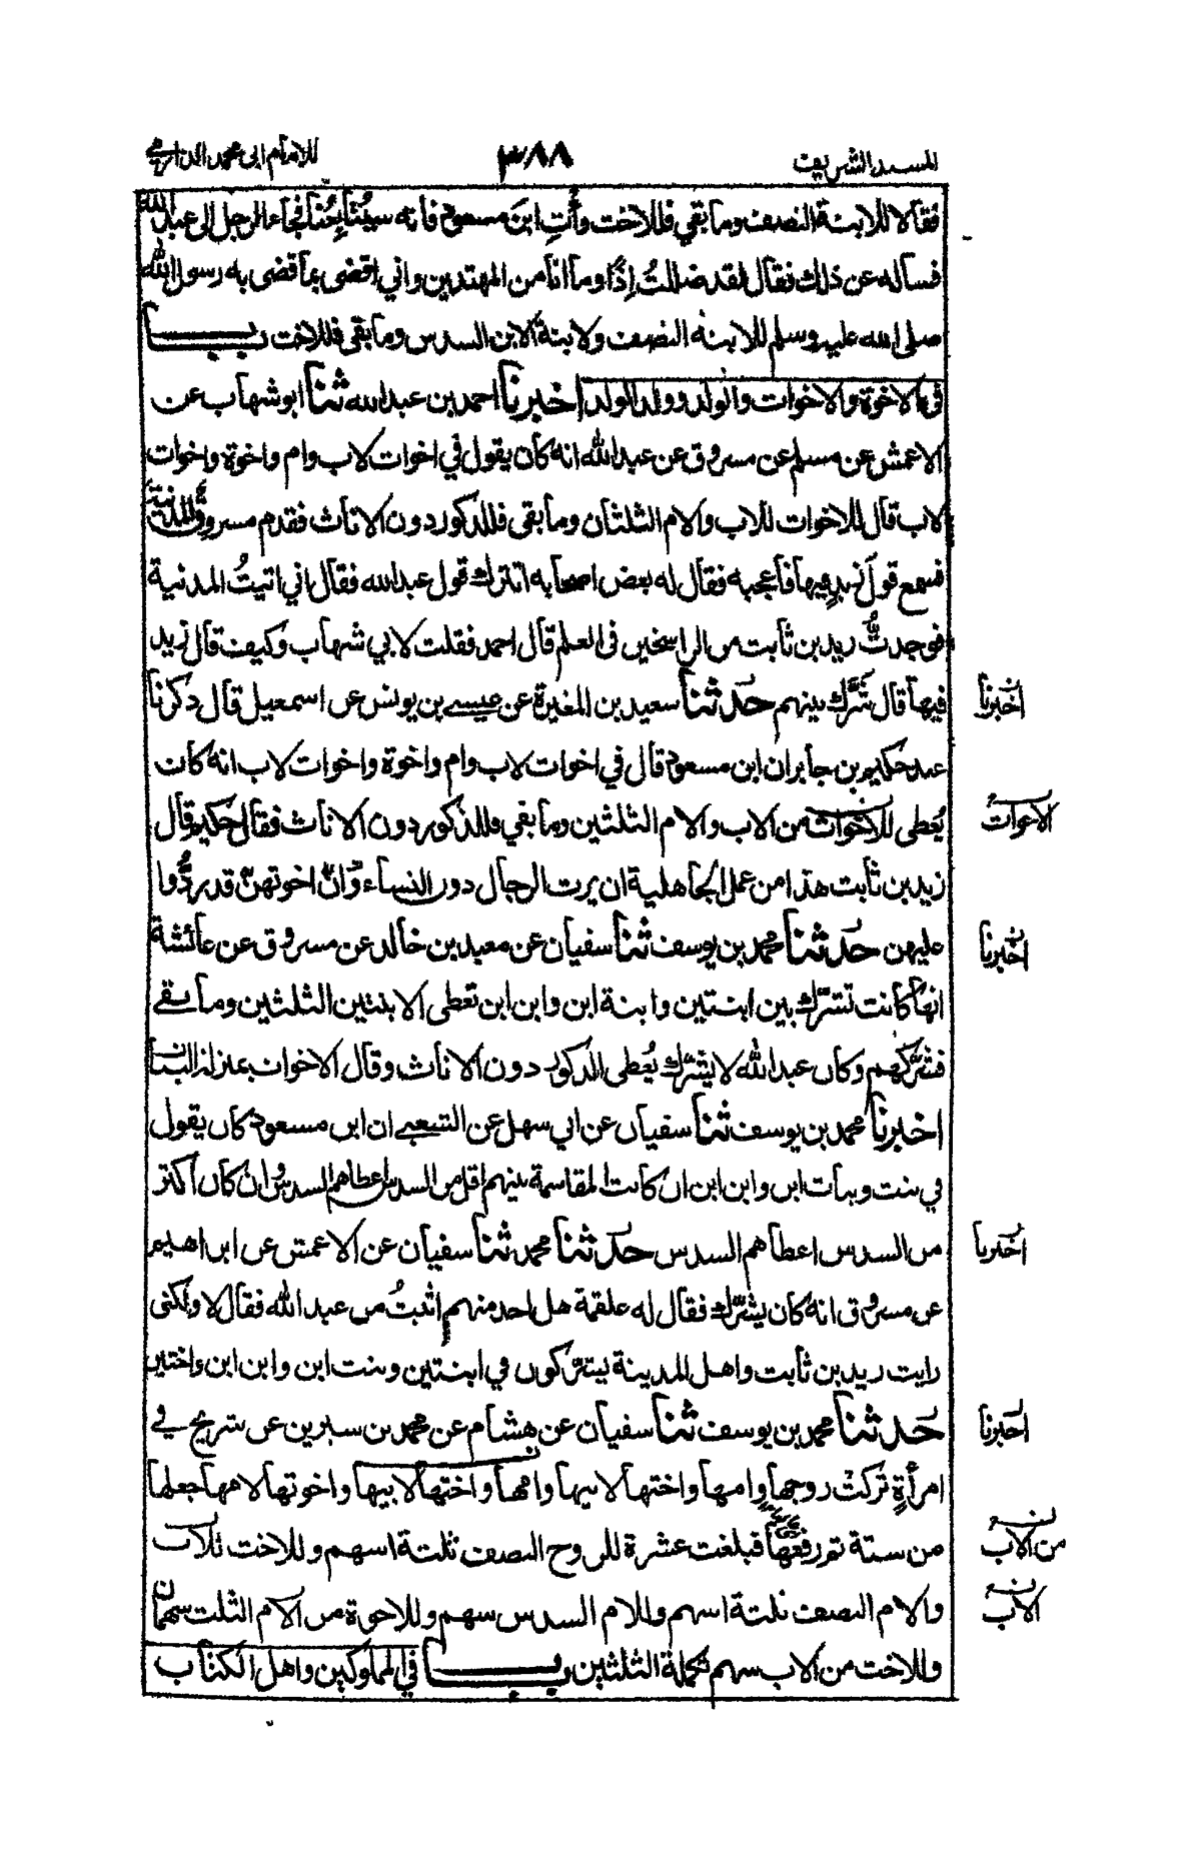 المسند الشريف
٣٨٨
للامام ابى محمد الدارمي
فقالا للابنة النصف وما بقي فللاخت وأتِ ابنَ مسعود فانه سيُتابِعُنا فجاء الرجل الى عبد الله
فسأله عن ذلك فقال لقد ضللتُ إذًا وما انا من المهتدين واني اقضى بما قضى به رسول الله
صلى الله عليه وسلم للابنة النصف ولابنة الابن السدس وما بقى فللاخت باب
في الاخوة والاخوات والولد وولد الولد اخبرنا احمد بن عبد الله ثنا ابو شهاب عن
الاعمش عن مسلم عن مسروق عن عبد الله انه كان يقول في اخوات لاب وام واخوة واخوات
لاب قال للاخوات للاب والام الثلثان وما بقى فللذكور دون الاناث فقدم مسروق المدينة
فسمع قول زيدٍ فيها فاعجبه فقال له بعض اصحابه اتترك قول عبد الله فقال اني اتيتُ المدنية
فوجدتُ زيد بن ثابت من الراسخين فى العلم قال احمد فقلت لابي شهاب وكيف قال زيد
فيها قال شَرَّك بينهم حدثنا سعيد بن المغيرة عن عيسى بن يونس عن اسمعيل قال ذكرنا
عند حكيم بن جابر ان ابن مسعود قال في اخوات لاب وام واخوة واخوات لاب انه كان
يُعطى للاخوات من الاب والام الثلثين وما بقي فللذكور دون الاناث فقال حكيم قال
زيد بن ثابت هذا من عمل الجاهلية ان يرث الرجال دون النساء وَانّ اخوتهنّ قد رُدُّوا
عليهن حدثنا محمد بن يوسف ثنا سفيان عن معبد بن خالد عن مسروق عن عائشة
انها كانت تشرّك بين ابنتين وابنة ابن وابن ابن تعطى الابنتين الثلثين وما بقے
فشَرَّكهم وكان عبد الله لا يشرّك يُعطى الذكور دون الاناث وقال الاخوات بمنزلة البنات
اخبرنا محمد بن يوسف ثنا سفيان عن ابي سهل عن الشعبے ان ابن مسعود كان يقول
في بنت وبنات ابن وابن ابن ان كانت المقاسمة بينهم اقل من السدس اعطاهم السدس وان كان اكثر
من السدس اعطاهم السدس حدثنا محمد ثنا سفيان عن الاعمش عن ابراهيم
عن مسروق انه كان يشرّك فقال له علقمة هل احد منهم اثبتُ من عبد الله فقال لا ولكنى
رايت زيد بن ثابت واهل المدينة يشرّكون في ابنتين وبنت ابن وابن ابن واختين
حدثنا محمد بن يوسف ثنا سفيان عن هشام عن محمد بن سيرين عن شريح في
امرأةٍ تركتْ زوجها وامها واختها لابيها وامها واختها لابيها واخوتها لامها جعلها
من ستة ثم رفعها فبلغت عشرة للزوج النصف ثلثة اسهم وللاخت للاب
والام النصف ثلثة اسهم وللام السدس سهم وللاخوة من الام الثلث سهمان
وللاخت من الاب سهم تكملة الثلثين باب في المملوكين واهل الكتاب
اخبرنا
الاخوات
اخبرنا
اخبرنا
اخبرنا
من الاب
الاب